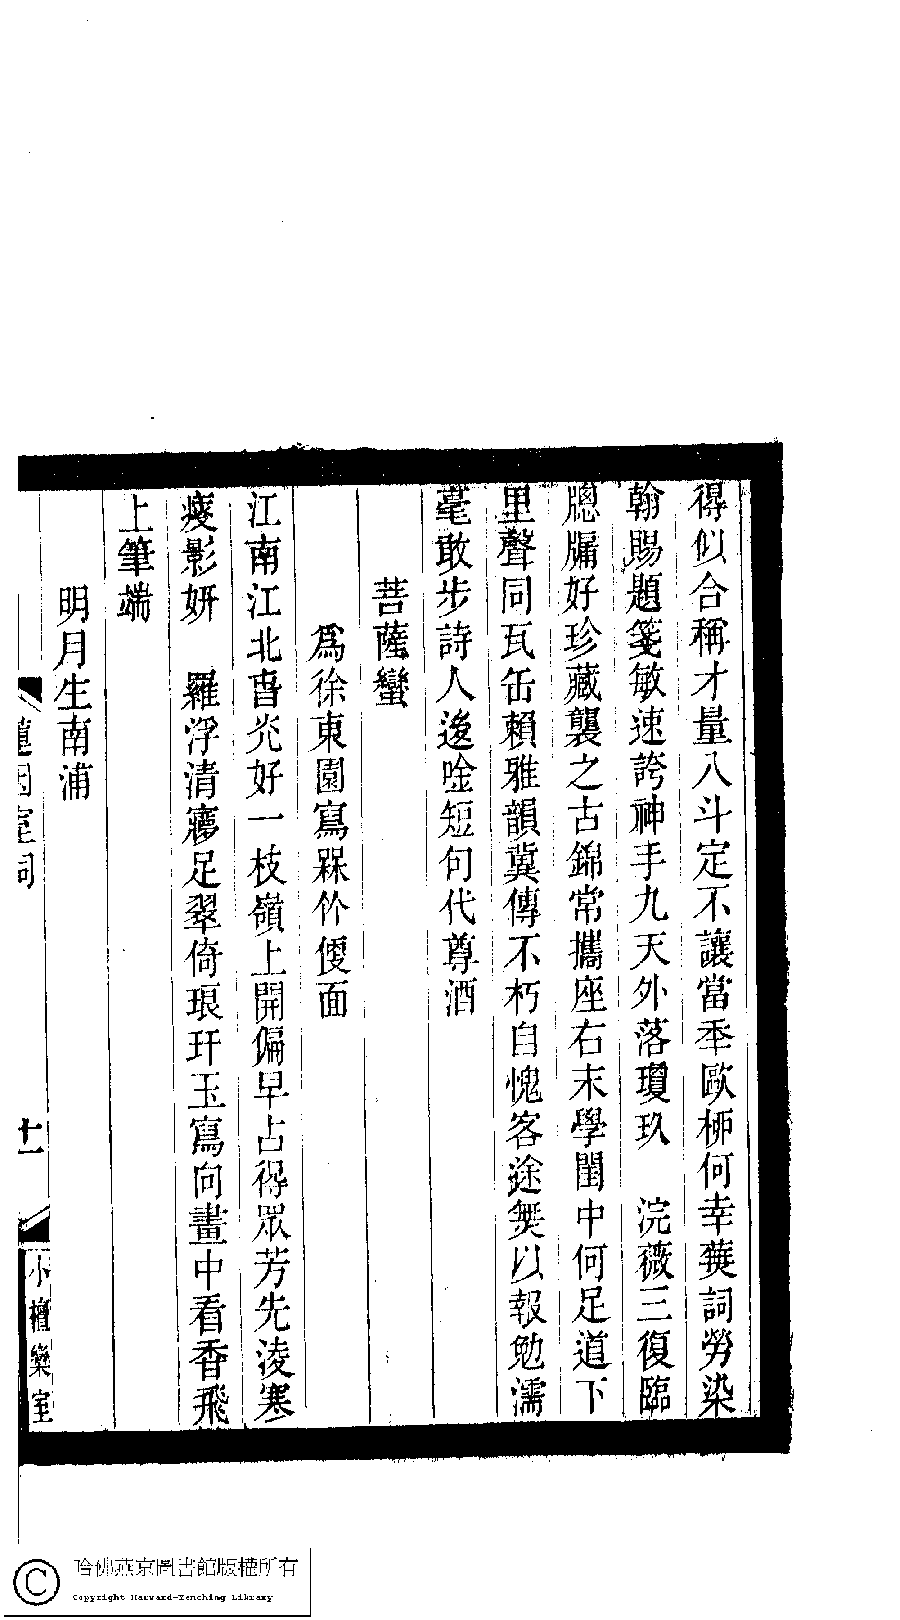 得似合稱才量八斗定不讓當秊歐桺何幸蕪詞勞染
翰賜題箋敏速誇神手九天外落瓊玖　浣薇三復臨
牕牖好珍藏襲之古錦常攜座右末學閨中何足道下
里聲同瓦缶賴雅韻冀傳不朽自愧客途無以報勉濡
毫敢步詩人後唫短句代尊酒
菩薩蠻
爲徐東園寫槑竹便面
江南江北春光好一枝嶺上開偏早占得眾芳先淩寒
瘦影妍　羅浮清夢足翠倚琅玕玉寫向畫中看香飛
上筆端
明月生南浦
蓮因室詞
十一
小檀欒室
哈佛燕京圖書館版權所有
Copyright Harvard-Yenching Library